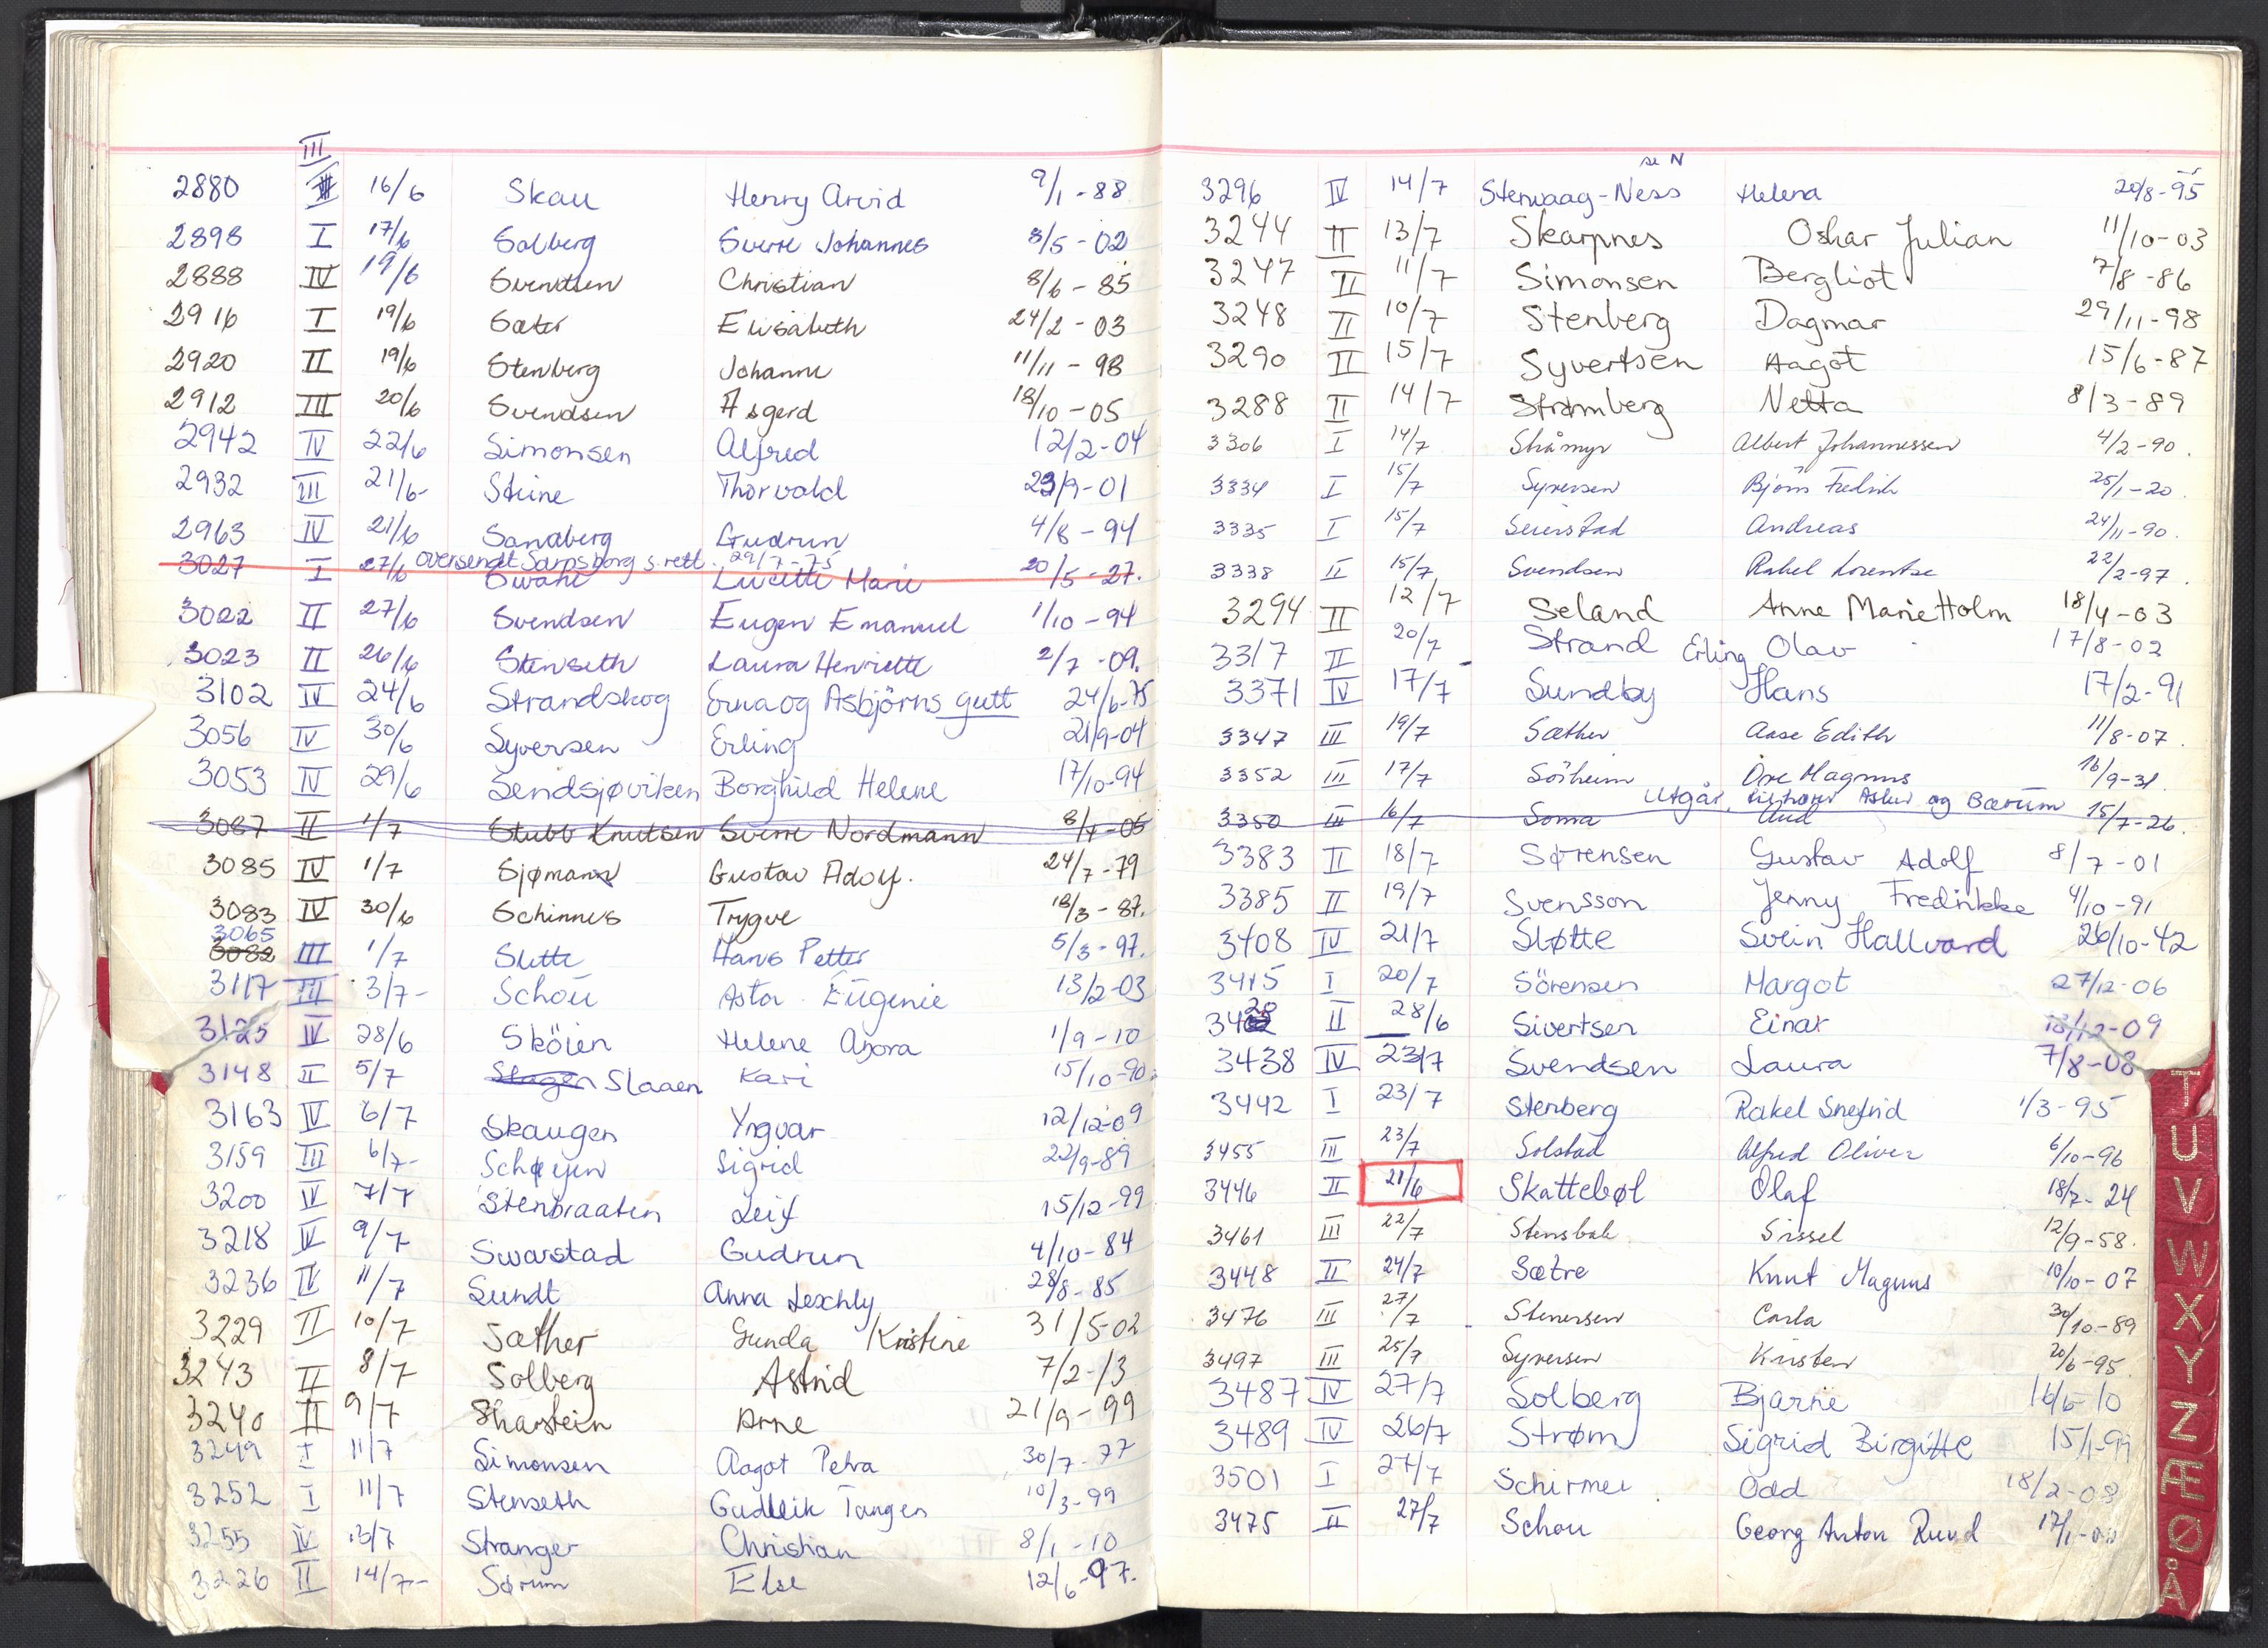 III
2880 16/6 Skau Henry Arvid 9/1-88
2898 I 17/6 Solberg Sverre Johannes 8/5-02
2888 IV 19/6 Svendsen Christian 8/6-85
2916 I 19/6 Sæter Elisabeth 24/2-03
2920 II 19/6 Stenberg Johanne 11/11-98
2912 III 20/6 Svendsen Asgerd 18/10-05
2942 IV 22/6 Simonsen Alfred 12/2-04
2932 III 21/6- Steine Thorvald 23/9-01
2963 IV 21/6 Sandberg Gudrun 4/8-94
oversendt Sarpsborg s.rett. 29/7-75
3027 I 27/6 Swane Lucette Marie 20/5-27.
3022 II 27/6 Svendsen Eugen Emanuel 1/10-94
3023 II 26/6 Stenseth Laura Henriette 2/7-09.
3102 IV 24/6 Strandskog Erna og Asbjörns gutt 24/6-75
3056 IV 30/6 Syversen Erling 21/9-04
3053 IV 29/6 Sendsjøviken Borghild Helene 17/10-94
3087 II 1/7 Stubb Knutsen Sverre Nordmann 8/7-05
3085 IV 1/7 Sjømann Gustav Adolf. 24/7-79
3083 IV 30/6 Schinnes Trygve 18/3-87.
3065
3082 III 1/7 Slette Hans Petter 5/3-97.
3117 III 3/7- Schou Asta Eugenie 13/2-03
3125 IV 28/6 Sköien Helene Agora 1/9-10
3148 II 5/7 Slagen Slaaen Kari 15/10-90.
3163 IV 6/7 Skaugen Yngvar 12/12-09
3159 III 6/7- Schøyen Sigrid 22/9-89
3200 IV 7/7 Stenbraaten Leif 15/12-99
3218 IV 9/7 Swarstad Gudrun 4/10-84
3236 IV 11/7 Sundt Anna Leschly 28/8-85
3229 II 10/7 Sæther Gunda Kristine 31/5-02
3243 II 8/7 Solberg Astrid 7/2-13
3240 II 9/7 Skarstein Arne 21/9-99
3249 I 11/7 Simonsen Aagot Petra 30/7-77
3252 I 11/7 Stenseth Gudleik Tangen 10/3-99
3255 IV 13/7 Stranger Christian 8/1-10
3226 II 14/7- Sørum Else 12/6-97.
se N
3296 IV 14/7 Stenvaag-Ness Helena 20/8-95
3244 II 13/7 Skarpnes Oskar Julian 11/10-03
3247 II 11/7 Simonsen Bergliot 7/8-86
3248 II 10/7 Stenberg Dagmar 29/11-98
3290 II 15/7 Syvertsen Aagot 15/6-87
3288 II 14/7 Strømberg Netta 8/3-89
3306 I 14/7 Skåmyr Albert Johannessen 4/2-90.
3334 I 15/7 Syversen Bjørn Fredrik 25/1-20.
3335 I 15/7 Seierstad Andreas 24/11-90.
3338 II 15/7 Svendsen Rakel Lorentse 22/2-97.
3294 II 12/7 Seland Anne Marie Holm 18/4-03
3317 II 20/7 Strand Erling Olav 17/8-02
3371 IV 17/7 Sundby Hans 17/2-91
3347 III 19/7 Sæther Aase Edith 11/8-07.
3352 III 17/7 Sörheim Ove Magnus 16/9-31.
Utgår, tilhører Asker og Bærum
3350 III 16/7 Soma Aud 15/7-26.
3383 II 18/7 Sørensen Gustav Adolf 8/7-01
3385 II 19/7 Svensson Jenny Fredrikke 4/10-91
3408 IV 21/7 Sløtte Svein Hallvard 26/10-42
3415 I 20/7 Sörensen Margot 27/12-06
3420 II 28/6 Sivertsen Einar 13/12-09
3438 IV 23/7 Svendsen Laura 7/8-08
3442 I 23/7 Stenberg Rakel Snefrid 1/3-95
3455 III 23/7 Solstad Alfred Oliver 6/10-96
3446 II 21/6 Skattebøl Olaf 18/2-24
3461 III 22/7 Stensbak Sissel 12/9-58.
3448 II 24/7 Sætre Knut Magnus 10/10-07
3476 III 27/7 Stenersen Carla 30/10-89
3497 III 25/7 Syversen Kristen 20/6-95.
3487 IV 27/7 Solberg Bjarne 16/6-10
3489 IV 26/7 Strøm Sigrid Birgitte 15/1-99
3501 I 27/7 Schirmer Odd 18/2-08
3475 II 27/7 Schou Georg Anton Ruud 17/1-00
T
U
V
W
X
Y
Z
Æ
Ø
Å